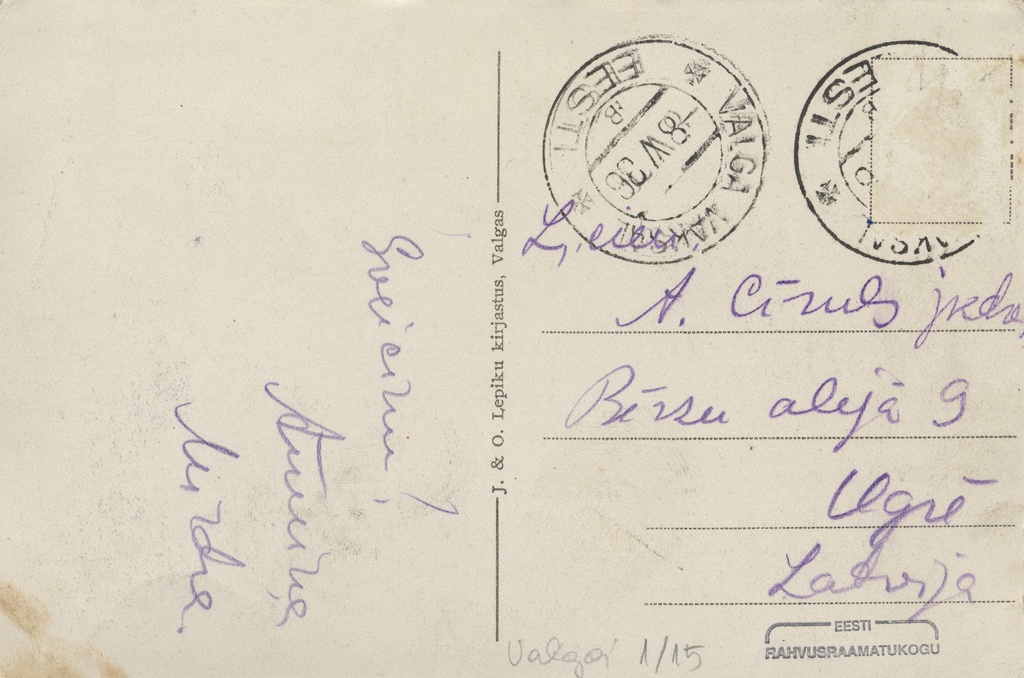 Sveicinu,
Anniņa
Mirdza.
J. & O. Lepiku kirjastus, Valgas
EESTI
VALGA VAKSAL
-8 V 36
B
EESTI
VAKSAL
A. Cīruls
Bērzu alejā 9
Ogrē
Latvija
Valga 1/15
EESTI
RAHVUSRAAMATUKOGU